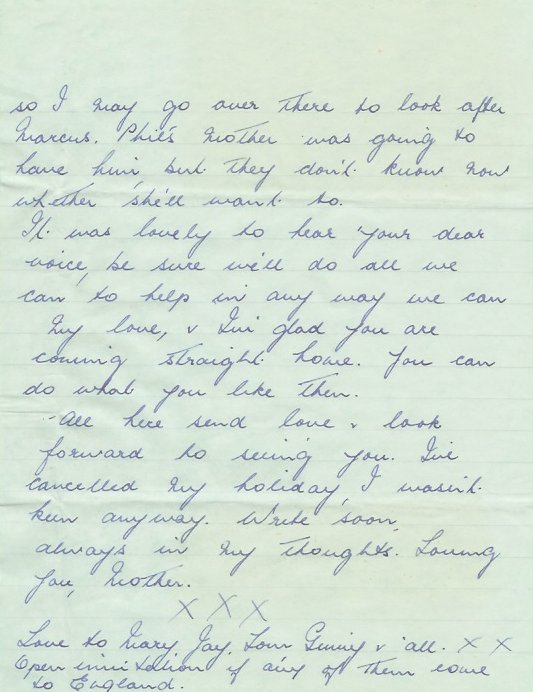 so I may go over there to look after
Marcus. Phil's Mother was going to
have him, but they don't know now
whether she'll want to.
It was lovely to hear your dear
voice, be sure we'll do all we
can, to help in any way we can
My love, & I'm glad you are
coming straight home. You can
do what you like then.
All here send love & look
forward to seeing you. I've
cancelled my holiday, I wasn't
keen anyway. Write soon,
always in my thoughts. Loving
you, Mother.
X X X
Love to Mary, Jay, Tom & all. X X
Open invitation if any of them come
to England.